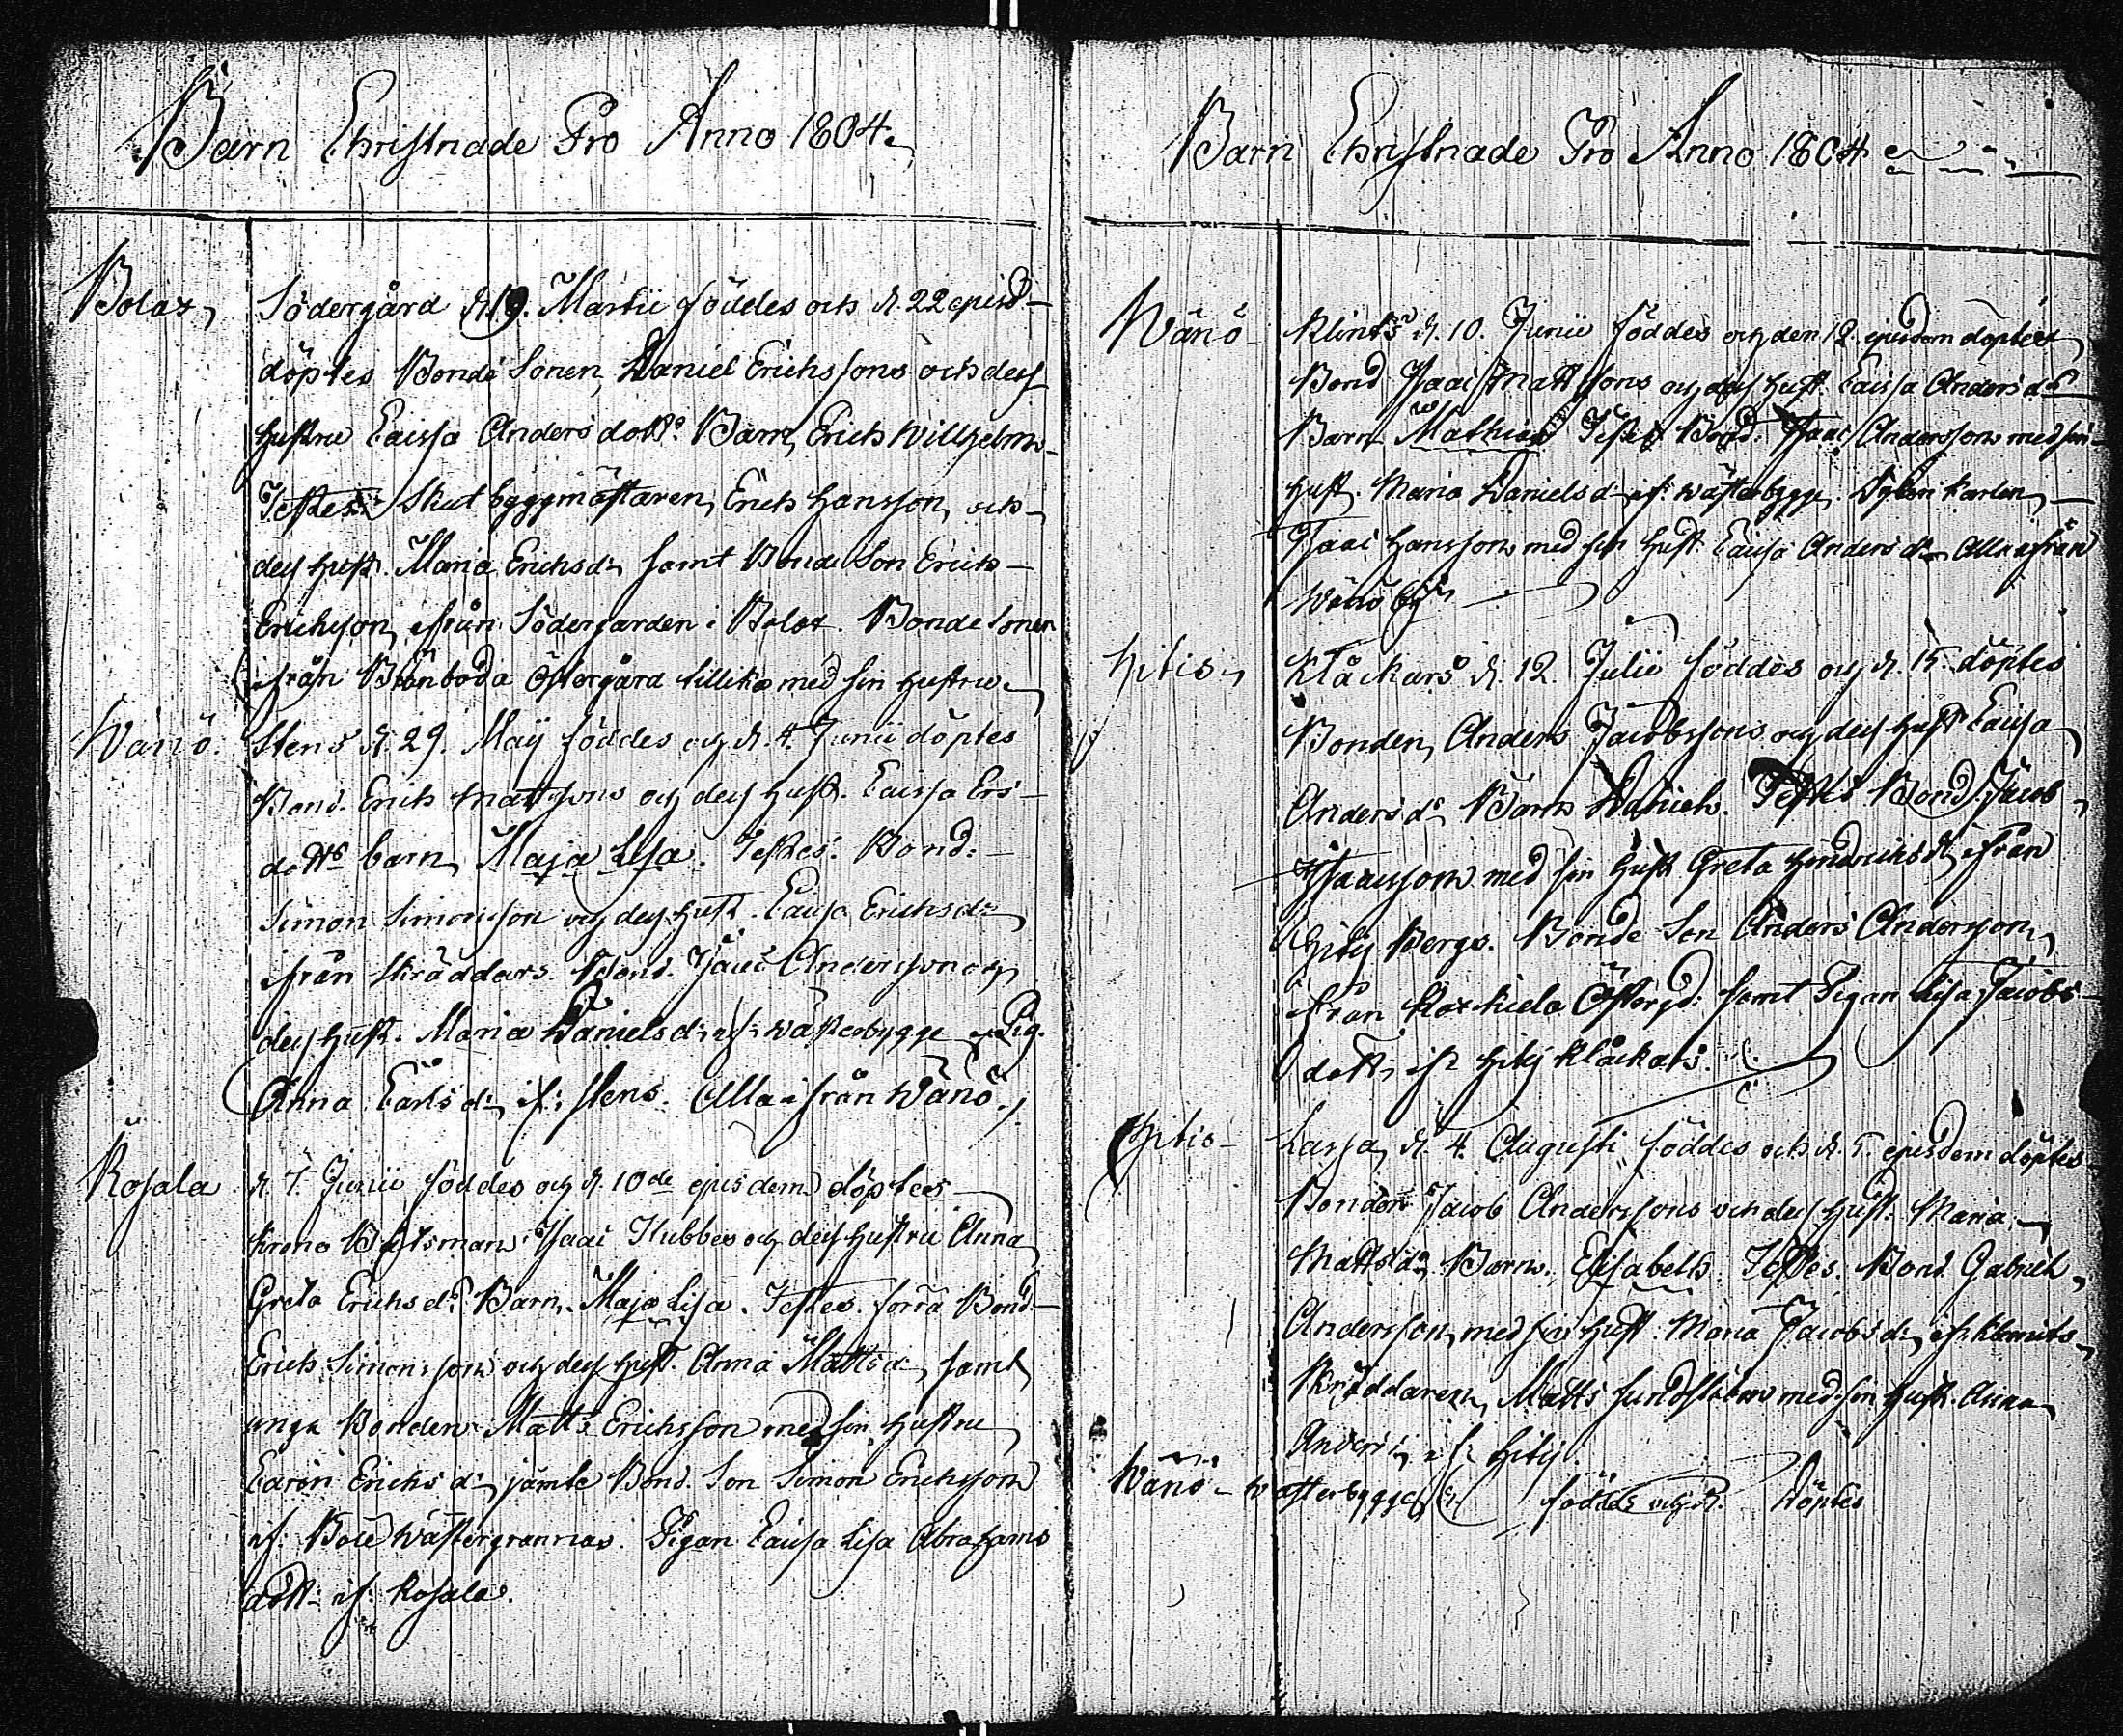 Barn Christnade Pro Anno 1804.
Bolax, Södergård d. 19. Martii föddes och d. 22 ejusd
döptes Bonde Sonen, Daniel Erichssons och dess
hustru Caissa Anders dotts Barn, Erich Willhelm
Testes: Skutbyggmästaren, Erich Hansson, och
dess hust. Maria Erichsdr samt Bonde Son Erich
Erichsson, ifrån Södergården i Bolax. Bonde Sonen
ifrån Böhnboda Östergård tillika med sin hustru
Wänö. Stens d. 29. Maij föddes och d. 4. Junii döptes
Bond. Erich Mattssons och dess hust. Caissa Ers
dotts barn, Maja Lisa. Testes. Bond:
Simon Simonsson och dess hust. Caisa Erichsdr
ifrån Skräddars. Bond. Isaac Andersson och
dess hust. Maria Daniels dr if: Wästerbygge, Pig.
Anna Carls dr, if: Stens. Alla ifrån Wänö.
Rosala d. 7. Junii föddes och d. 10de ejusdem döptes
Krono Båtsman Isaac Stubbes och dess hustru Anna
Greta Erichs drs Barn, Maja Lisa. Testes. förra Bond
Erich Simonsson och dess hust. Anna Matts dr, samt
unga Bonden Matts Erichsson med sin hustru
Carin Erichs dr, jämte Bond. Son Simon Erichsson
if: Böle Wästergrannas. Pigan Caisa Lisa Abrahams
dott: if: Rosala.
Barn Christnade Pro Anno 1804
Wänö Klints d. 10. Junii föddes och den 12. ejusdem döptes
Bond Isaac Mattssons och dess hust. Caissa Anders drs
Barn Mathias Testes Bond. Isaac Andersson med sin
hust. Maria Daniels dr if: Wästerbygge. Dylen Karlen,
Isaac Hansson med sin hust. Caisa Anders dr Alla ifrån
Wänö by
Hitis, Klåckars d. 12. Julii föddes och d. 15. döptes
Bonden, Anders Jacobssons och dess hust Caisa
Anders drs Barn Daniel. Testes Bond. Jacob
Isaacsson med sin hust Greta Hindrichs dr ifrån
Hitis Bergs. Bonde Son Anders Andersson,
ifrån Kaxkiela Östergd: samt Pigan Lisa Jacobs
dott, ifr Hitis Klåckars.
Hitis Lassa, d. 4. Augusti föddes och d. 5. ejusdem döptes
Bonden Jacob Anderssons och dess hust. Maria
Matts drs Barn, Elisabeth. Testes. Bond. Gabriel
Andersson, med sin hust. Maria Jacobs dr, ifr Klemits
Skräddaren, Matts Sundström med sin hust. Anna
Anders dr, if: Hitis.
Wänö Wästerbygge, d. föddes och d. döptes